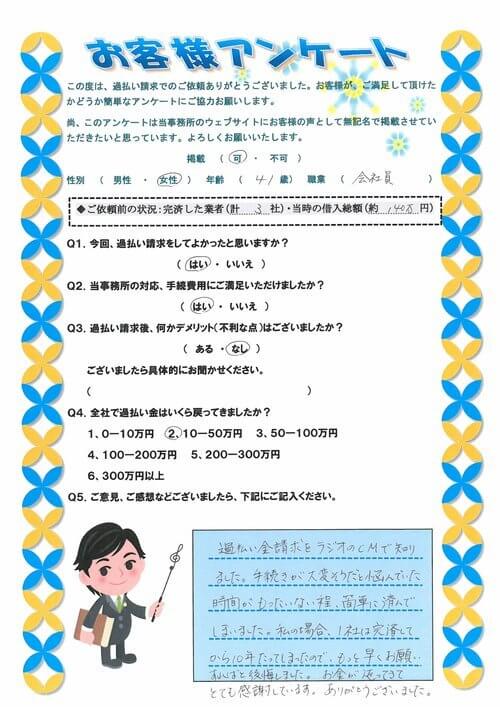 お客様アンケート
この度は、過払い請求でのご依頼ありがとうございました。お客様が、ご満足して頂けた
かどうか簡単なアンケートにご協力お願いします。
尚、このアンケートは当事務所のウェブサイトにお客様の声として無記名で掲載させてい
ただきたいと思っています。よろしくお願いいたします。
掲載 ( 可 ・ 不可 )
性別 ( 男性 ・ 女性 ) 年齢 ( 41 歳) 職業 ( 会社員 )
◆ご依頼前の状況:完済した業者(計 3 社)・当時の借入総額(約 140万 円)
Q1. 今回、過払い請求をしてよかったと思いますか?
( はい ・ いいえ )
Q2. 当事務所の対応、手続費用にご満足いただけましたか?
( はい ・ いいえ )
Q3. 過払い請求後、何かデメリット(不利な点)はございましたか?
( ある ・ なし )
ございましたら具体的にお聞かせください。
( )
Q4. 全社で過払い金はいくら戻ってきましたか?
1、0-10万円 2、10-50万円 3、50-100万円
4、100-200万円 5、200-300万円
6、300万円以上
Q5. ご意見、ご感想などございましたら、下記にご記入ください。
過払い金請求をラジオのCMで知り
ました。手続きが大変そうだと悩んでいた
時間がもったいない程、簡単に済んで
しまいました。私の場合、1社は完済して
から10年たってしまったので、もっと早くお願い
すればと後悔しました。お金が返ってきて
とても感謝しています。ありがとうございました。